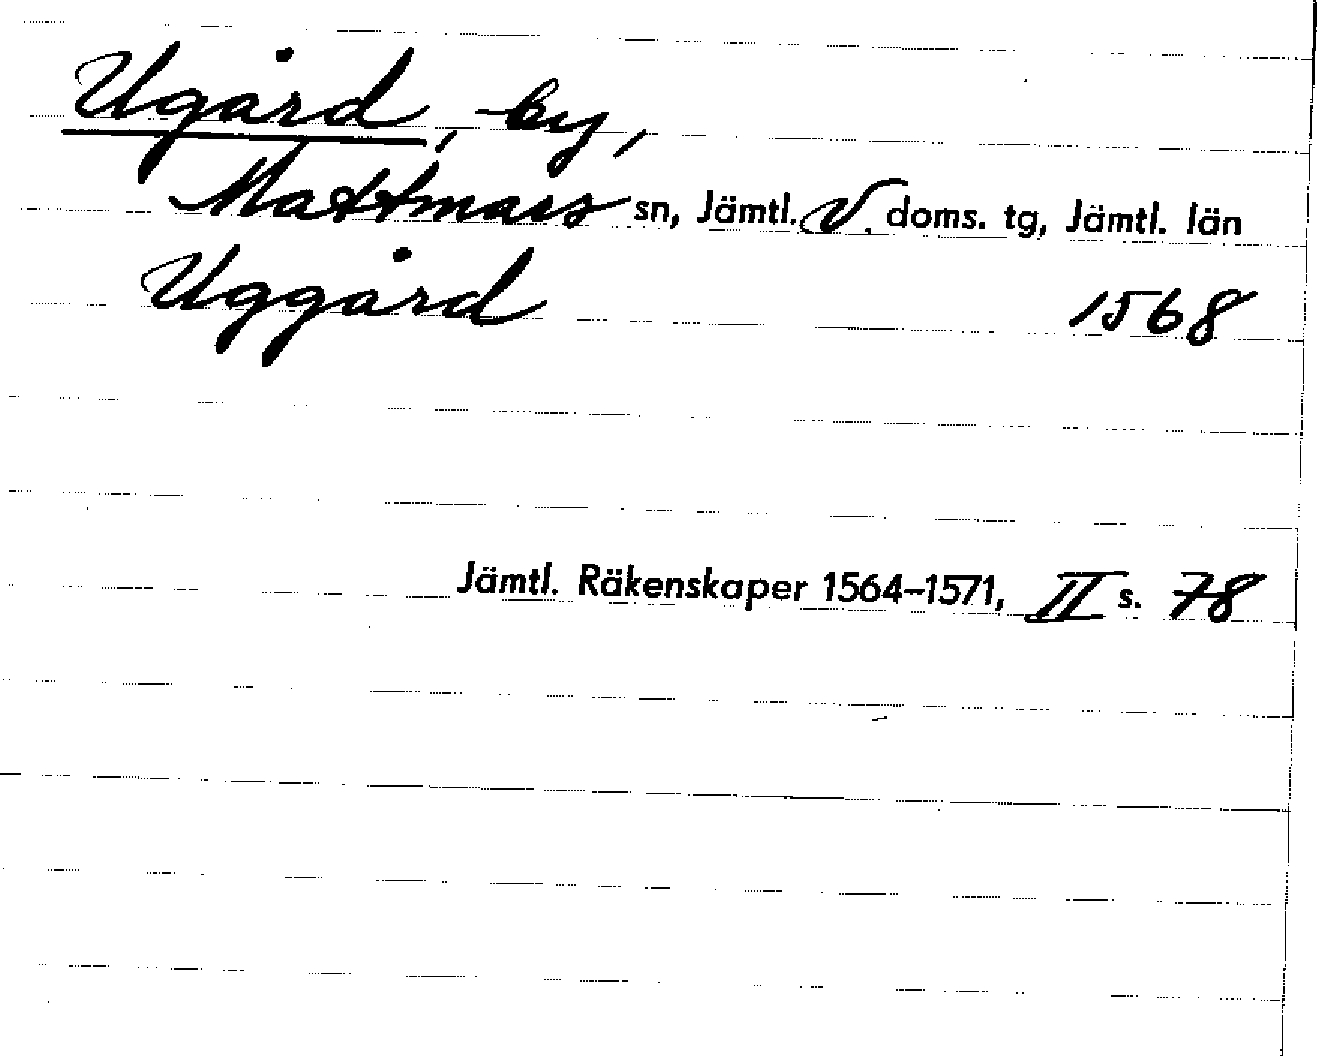 Ugård, by,
Mattmars sn, Jämtl. V. doms. tg, Jämtl. län
Uggård 1568
Jämtl. Räkenskaper 1564–1571, II s. 78